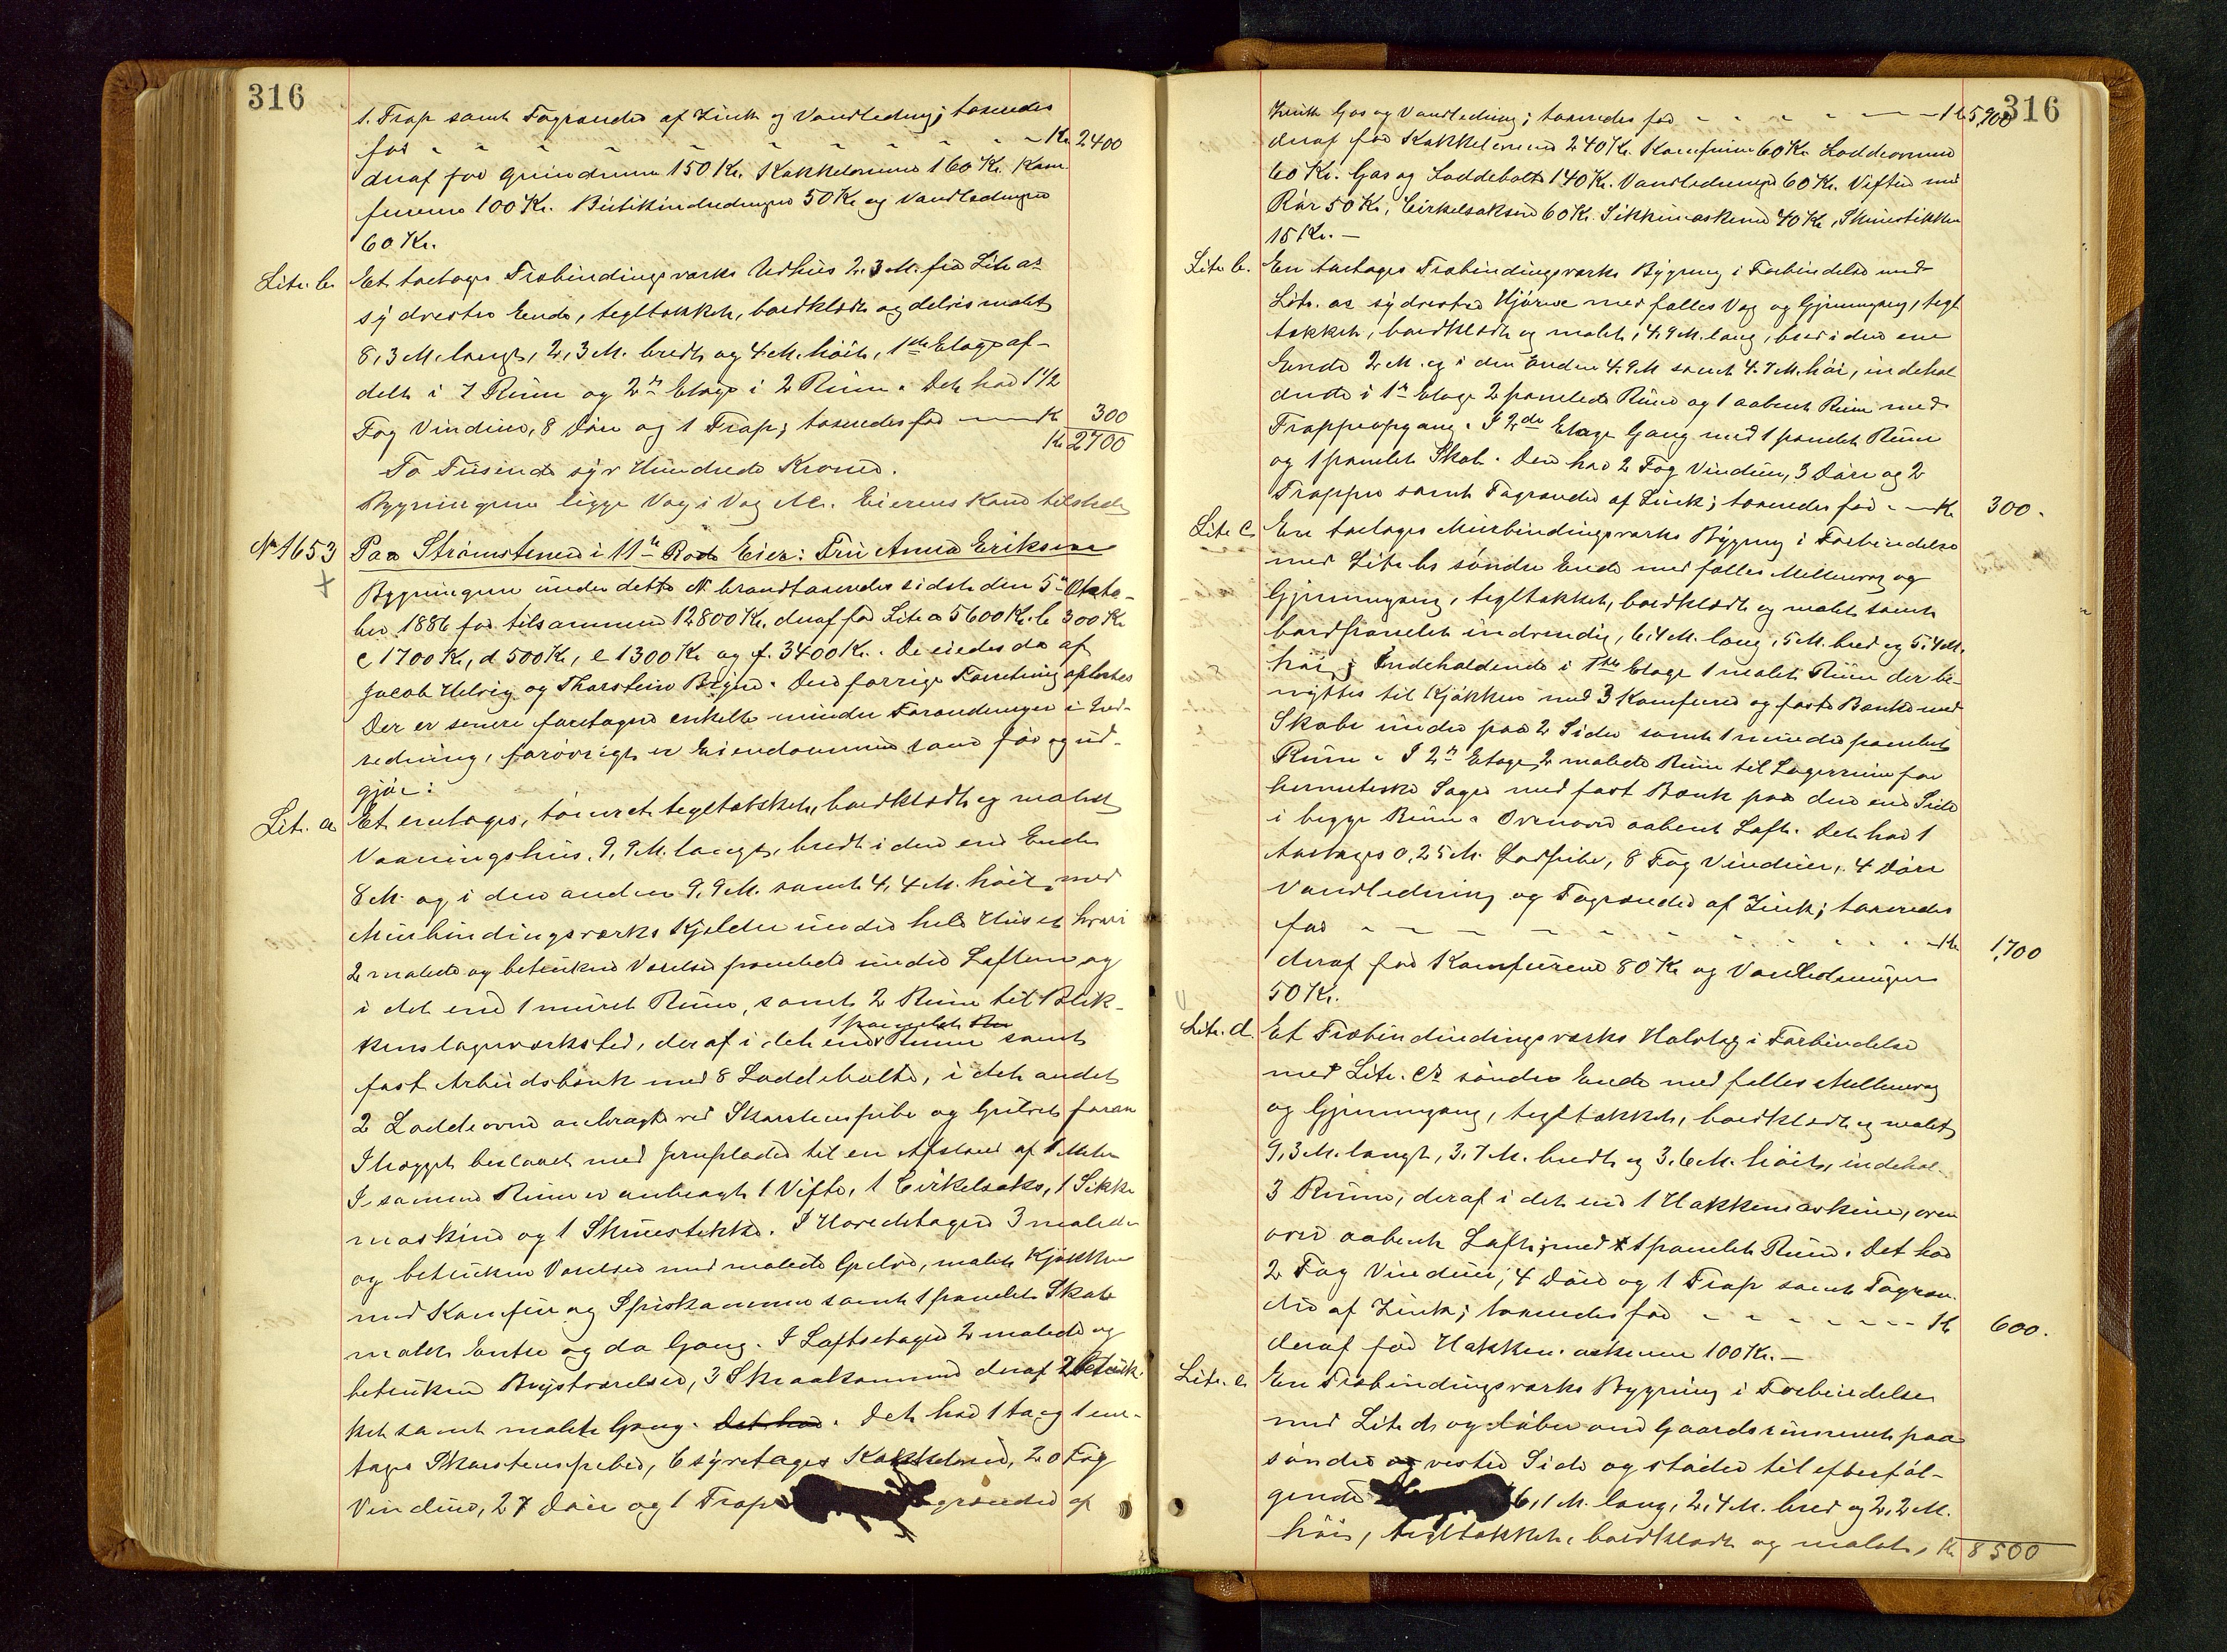 316
1. Trap samt Tagrender af Zink og Vandledning; taxeredes
for - - - - - - - - - Kr. 2400
deraf for Gruerne 150 Kr. Kakkelovnene 160 Kr. Kom-
furerne 100 Kr. Butikindredningen 50 Kr og Vandledningen
60 Kr.
Litr. b. Et toetages Træbindingsværks Udhus 2.3 M. fra Litr. as
sydvestre Ende, tegltækket, bordklædt og delvis malet
8,3 M. langt, 2,3 M. bredt og 4 M. høit, 1ste Etage af-
delt i 7 Rum og 2den Etage i 2 Rum. Det har 1 1/2
Fag Vinduer, 8 Døre og 1 Trap; taxeredes for — Kr 300
Kr 2700
To Tusinde syv Hundrede Kroner.
Bygningerne ligge Væg i Væg M. Eierens Kone tilstede
No 1653 Paa Strømstenen i 11te Rode Eier: Fru Anna Eriksen
Bygningerne under dette No brandtaxeredes sidst den 5te Okto-
ber 1886 for tilsammen 12800 Kr. deraf for Litr a 5600 Kr. b 300 Kr
c 1700 Kr, d 500 Kr, e 1300 Kr og f. 3400 Kr. De eiedes da af
Jacob Helvig og Thorstein Bryne. Den forrige Forretning oplæstes
Der er senere foretagne enkelte mindre Forandringer i Ind-
redning, forøvrigt er Eiendommen som før og ud-
gjør:
Litr. a Et enetages, tømret tegltækket, bordklædt og malet
Vaaningshus, 9,9 M. langt, bredt i den ene Ende
8 M. og i den anden 9,9 M. samt 4,4 M. høit, med
Murbindingsværks Kjælder under hele Huset hvori
2 malede og betrukne Værelser panelede under Lofterne og
i det ene 1 muret Rum, samt 2 Rum til Blik-
1 panelet Rum
kenslagerværksted, deraf i det ene Rum samt
fast Arbeidsbænk med 8 Loddebolte, i det andet
2 Loddeovne anbragte ved Skorstenspibe og Gulvet foran
Ihvegget beslaaet med Jernplader til en Afstand af 1 Meter
I samme Rum er anbragt 1 Vifte, 1 Cirkelsaks, 1 Sikke
maskine og 1 Skruestikke. I Hovedetagen 3 malede
og betrukne Værelser med malede Gulve, malet Kjøkken
med Komfur og Spiskammer samt 1 panelet Skab
malet Entre og do Gang. I Loftsetagen 2 malede og
betrukne Kvistværelser, 3 Skraakammere deraf 2 betruk-
ket samt malet Gang. Det har. Det har 1 to og 1 ene-
tages Skorstenspiber, 6 syretages Kakkelovne, 20 Fag
Vinduer, 27 Døre og 1 Trap grender af
316
Zink Gas og Vandledning; taxeredes for - - - - - Kr 5,900
deraf for Kakkelovnene 240 Kr. Komfuren 60 Kr Loddeovnene
60 Kr. Gas og Loddebolte 140 Kr. Vandledningen 60 Kr. Viften med
Rør 50 Kr, Cirkelsaksen 60 Kr. Sikkemaskinen 40 Kr, Skruestikken
15 Kr. —
Litr b. En toetages Træbindingsværks Bygning i Forbindelse med
Litr. as sydvestre Hjørne med fælles Væg og Gjennemgang, tegl
tækket, bordklædt og malet, 4,9 M. lang, bred i den ene
Ende 2 M. og i den Anden 4.9 M samt 4.7 M. høi, indehol
dende i 1te Etage 2 panelede Rum og 1 aabent Rum med
Trappeopgang. I 2den Etage Gang med 1 panelet Rum
og 1 panelet Skab. Den har 2 Fag Vinduer, 3 Døre og 2
Trapper samt Tagrender af Zink; taxeredes for - - Kr 300.
Litr c. En toetages Murbindingsværks Bygning i Forbindelse
med Litr bs søndre Ende med fælles Mellemvæg og
Gjennemgang, tegltækket, bordklædt og malet samt
bordpanelet indvendig, 6.4 M. lang, 5 M. bred og 5.4 M.
høi; Indeholdende i 1ste Etage 1 malet Rum der be-
nyttes til Kjøkken med 3 Komfurer og faste Bænke med
Skabe under paa 2 Sider samt 1 mindre panelet
Rum. I 2den Etage 2 malede Rum til Lagerrum for
hermetiske Sager med fast Bænk paa den ene Side
i begge Rum. Ovenover aabent Loft. Det har 1
toetages 0,25 M. Lodpibe, 8 Fag Vinduer, 4 Døre
Vandledning og Tagrender af Zink; taxeredes
for - - - - - - - - - Kr 1,700
deraf for Komfurerne 80 Kr og Vandledningen
50 Kr.
Litr. d. Et Træbindindingsværks Halvtag i Forbindelse
med Litr. cs søndre Ende med fælles Mellemvæg
og Gjennemgang, tegltækket, bordklædt og malet
9,3 M. langt, 3.7 M. bredt og 3.6 M. høit, indehol.
3 Rum, deraf i det ene 1 Hakkemaskine, oven
over aabent Loft; med 1 panelet Rum. Det har
2 Fag Vinduer, 4 Døre og 1 Trap samt Tagren-
der af Zink; taxeredes for - - - - - - - Kr 600.
deraf for Hakkemaskinen 100 Kr. —
Litr. e. En Træbindingsværks Bygning i Forbindelse
med Litr ds og løber om Gaardsrummet paa
søndre og vestre Side og støder til efterføl-
gende 6,1 M. lang, 2,4 M. bred og 2,2 M.
høi, tegltækket, bordklædt og malet, Kr 8500